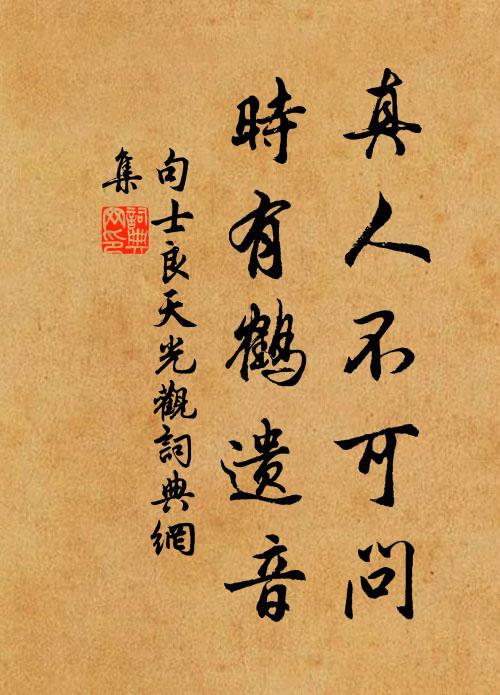 真人不可問
時有鶴遺音
句士良天光觀詞典網
集
詞典
网印